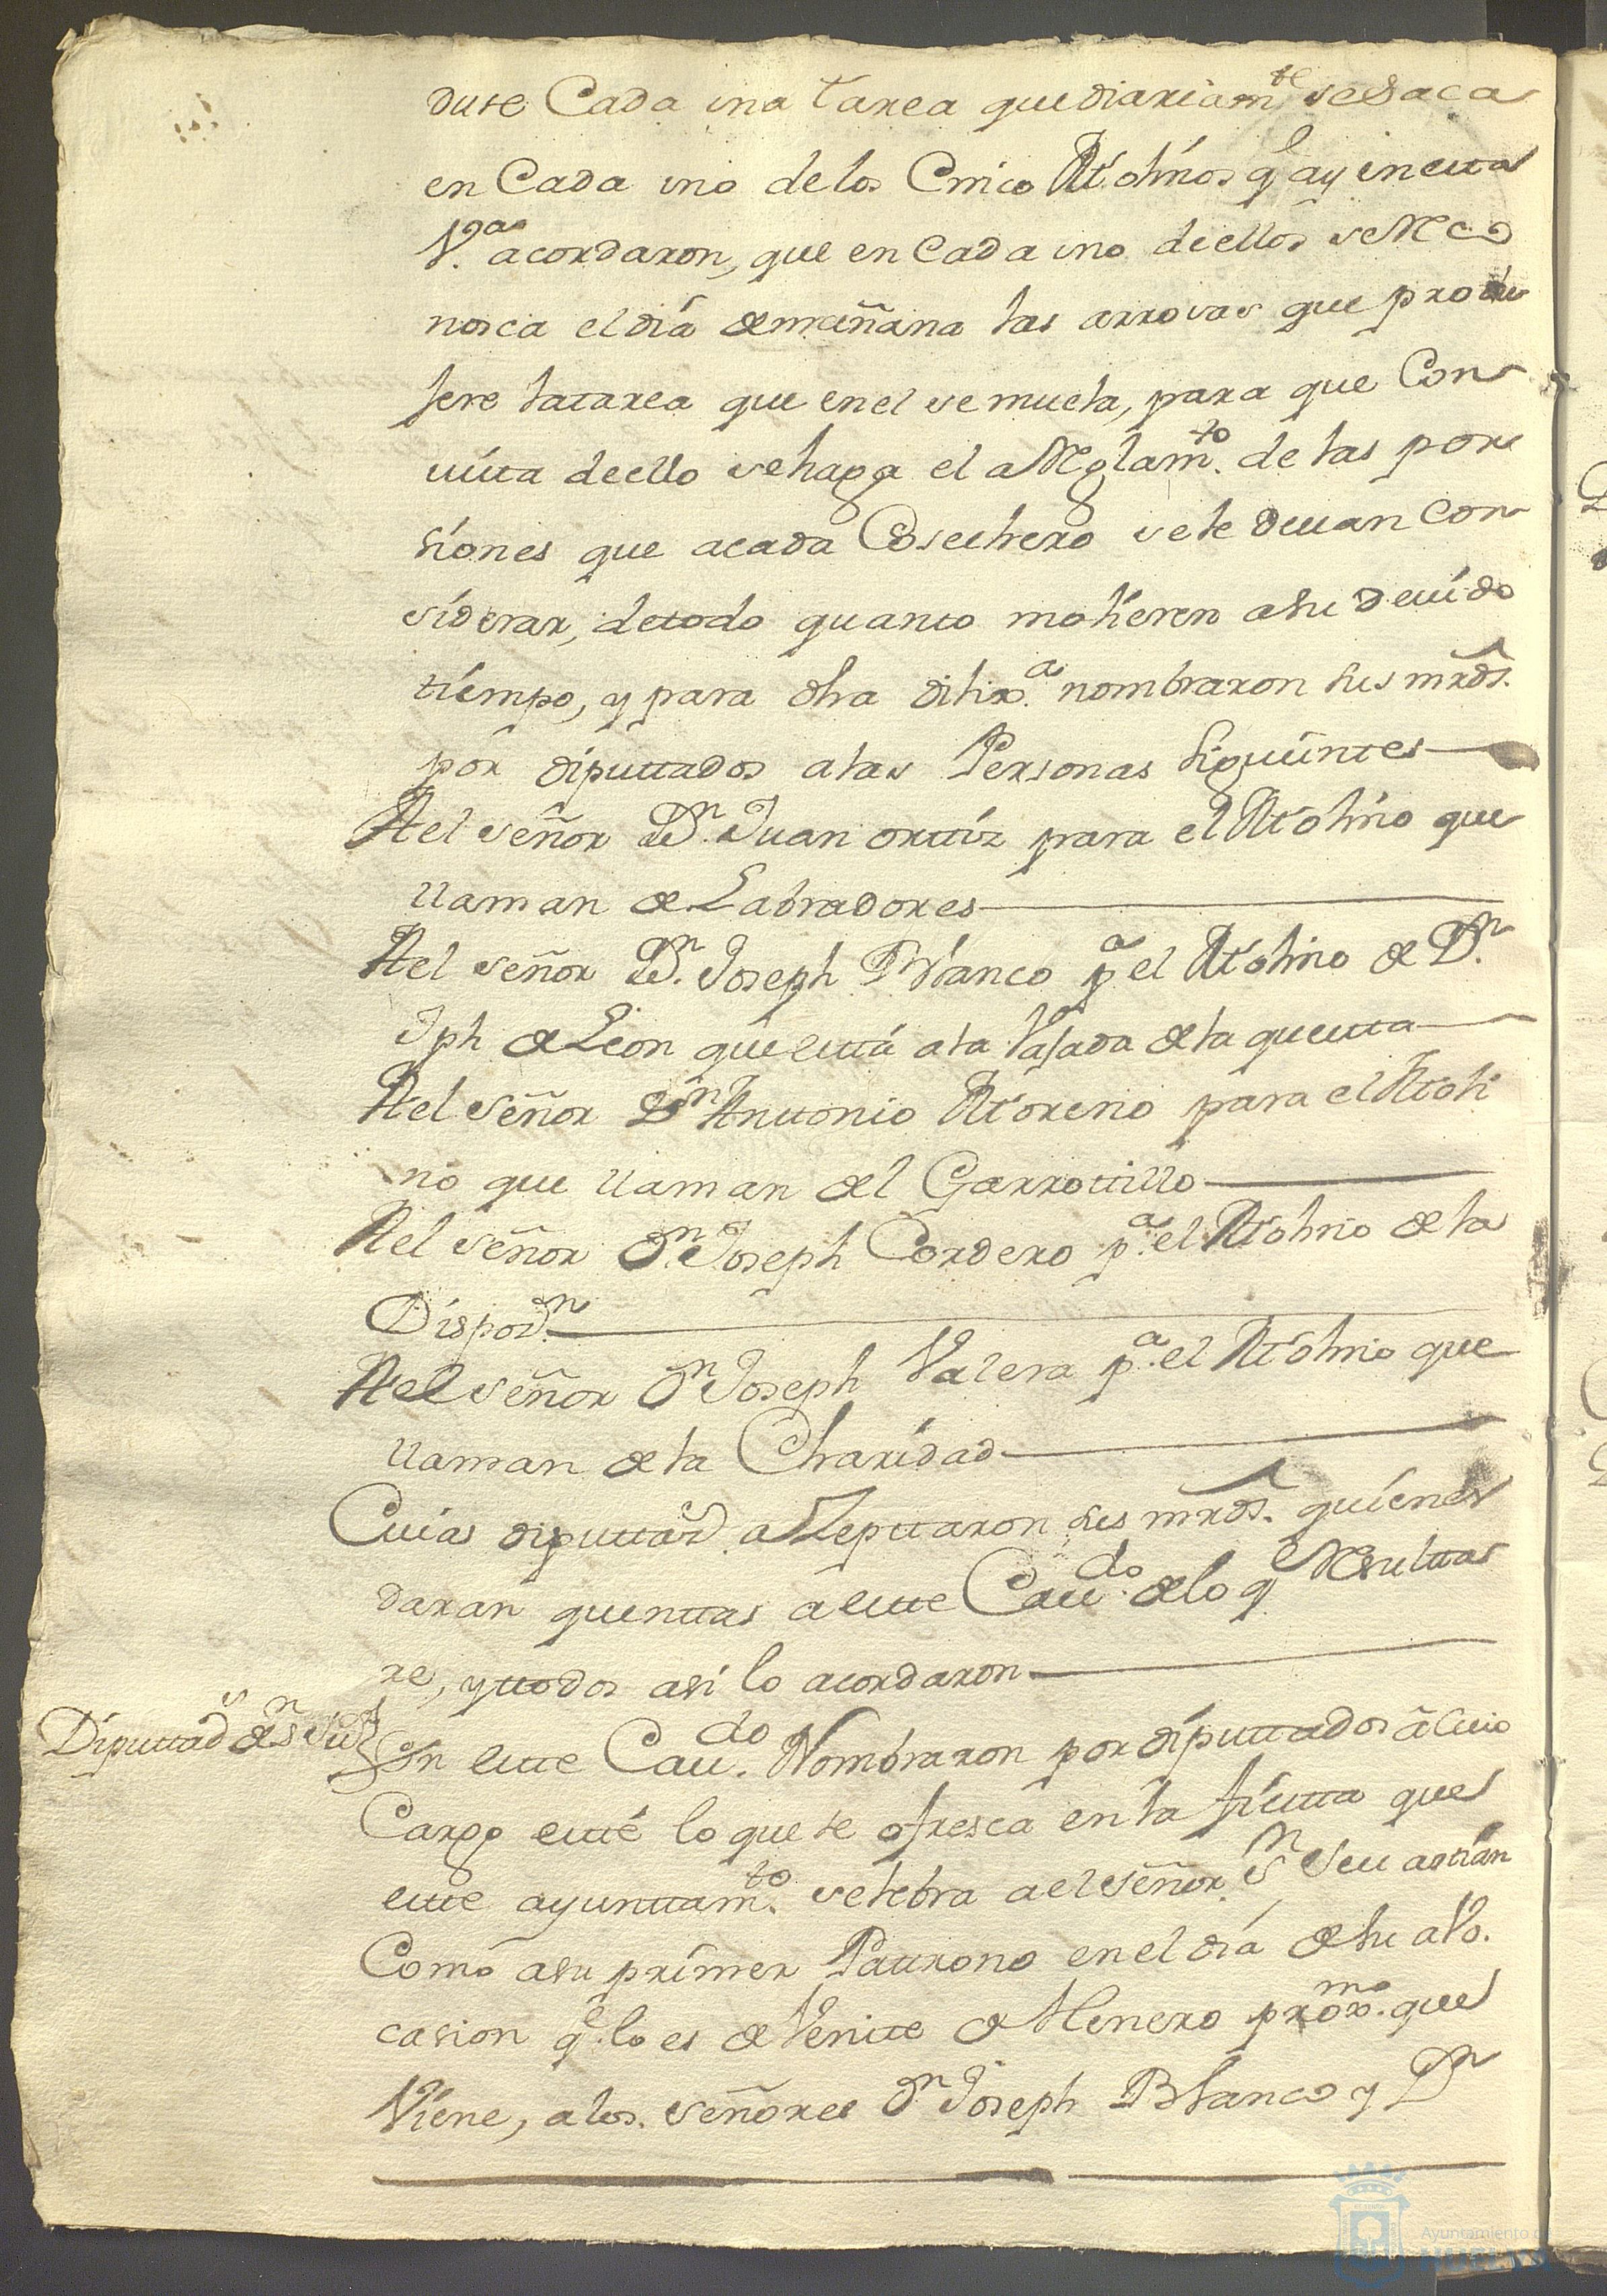 duse Cada una tarea que diariam.te se Saca
en Cada uno de los Cinco Molinos q.e ay en esta
V.a acordaron, que en Cada uno de ellos se Reco
nosca el dia de mañana las arrovas que produ
sere la tarea que en el se muela, para que Con
vista de ello se haga el aReglam.to de las por
siones que acada Cosechero se le devan Con
siderar, de todo quanto molieren a su devido
tiempo, y para dha dilix.a nombraron sus mrds.
por diputtados a las Personas siguientes
A el señor D.n Juan orttiz para el Molino que
llaman de Labradores
A el señor D.n Joseph Blanco p.a el Molino de D.n
Jph de Leon que está a la Vajada de la questta
A el señor D.n Anttonio Moreno para el Moli
no que llaman del Garrottillo
A el señor D.n Joseph Cordero p.a el Molino de la
Disposi.n
A el señor D.n Joseph Valera p.a el Molino que
llaman de la Charidad
Cuias diputtad.s aZepttaron sus mrds. quienes
daran quenttas a estte Cav.do de lo q.e Resulttas
re, y ttodos asi lo acordaron
Diputtad.s de S.n Sev.n
En estte Cav.do Nombraron por diputtados a Cuio
Cargo estté lo que se ofresca en la fiestta que
estte ayunttam.to selebra a el señor S.n Sevastian
Como a su primer Pattrono en el dia de su abo.
casion q.e lo es de Veintte de Henero prox.mo que
Viene, a los señores D.n Joseph Blanco y D.n
Ayuntamiento de
HUELVA